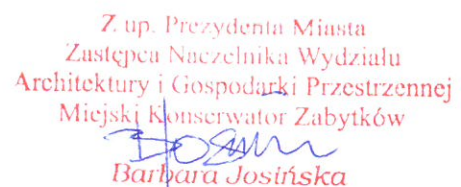 Z up. Prezydenta Miasta
Zastępca Naczelnika Wydziału
Architektury i Gospodarki Przestrzennej
Miejski Konserwator Zabytków
Barbara Josińska